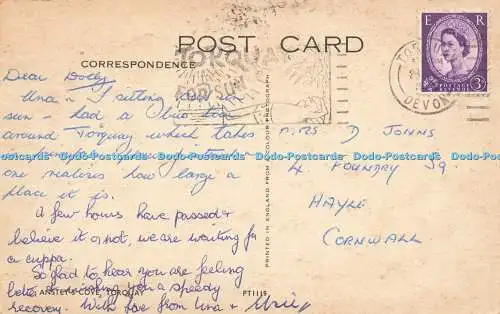 POST CARD
CORRESPONDENCE
TORQUAY
E R
POSTAGE REVENUE
3D
DEVON
Dear Dolly
Una & I sitting in
sun - had a bus tour
around Torquay which takes
one realizes how large a
place it is.
A few hours have passed &
believe it or not, we are waiting for
a cuppa.
So glad to hear you are feeling
better & wishing you a speedy
recovery. With love from Una &
ANSTEY'S COVE, TORQUAY
PT1115
PRINTED IN ENGLAND FROM A COLOUR PHOTOGRAPH
MRS D JOHNS
4 FOUNDRY SQ.
HAYLE
CORNWALL
Dodo-Postcards Dodo-Postcards Dodo-Postcards Dodo-Postcards Dodo-Postcards Dodo-Postcards